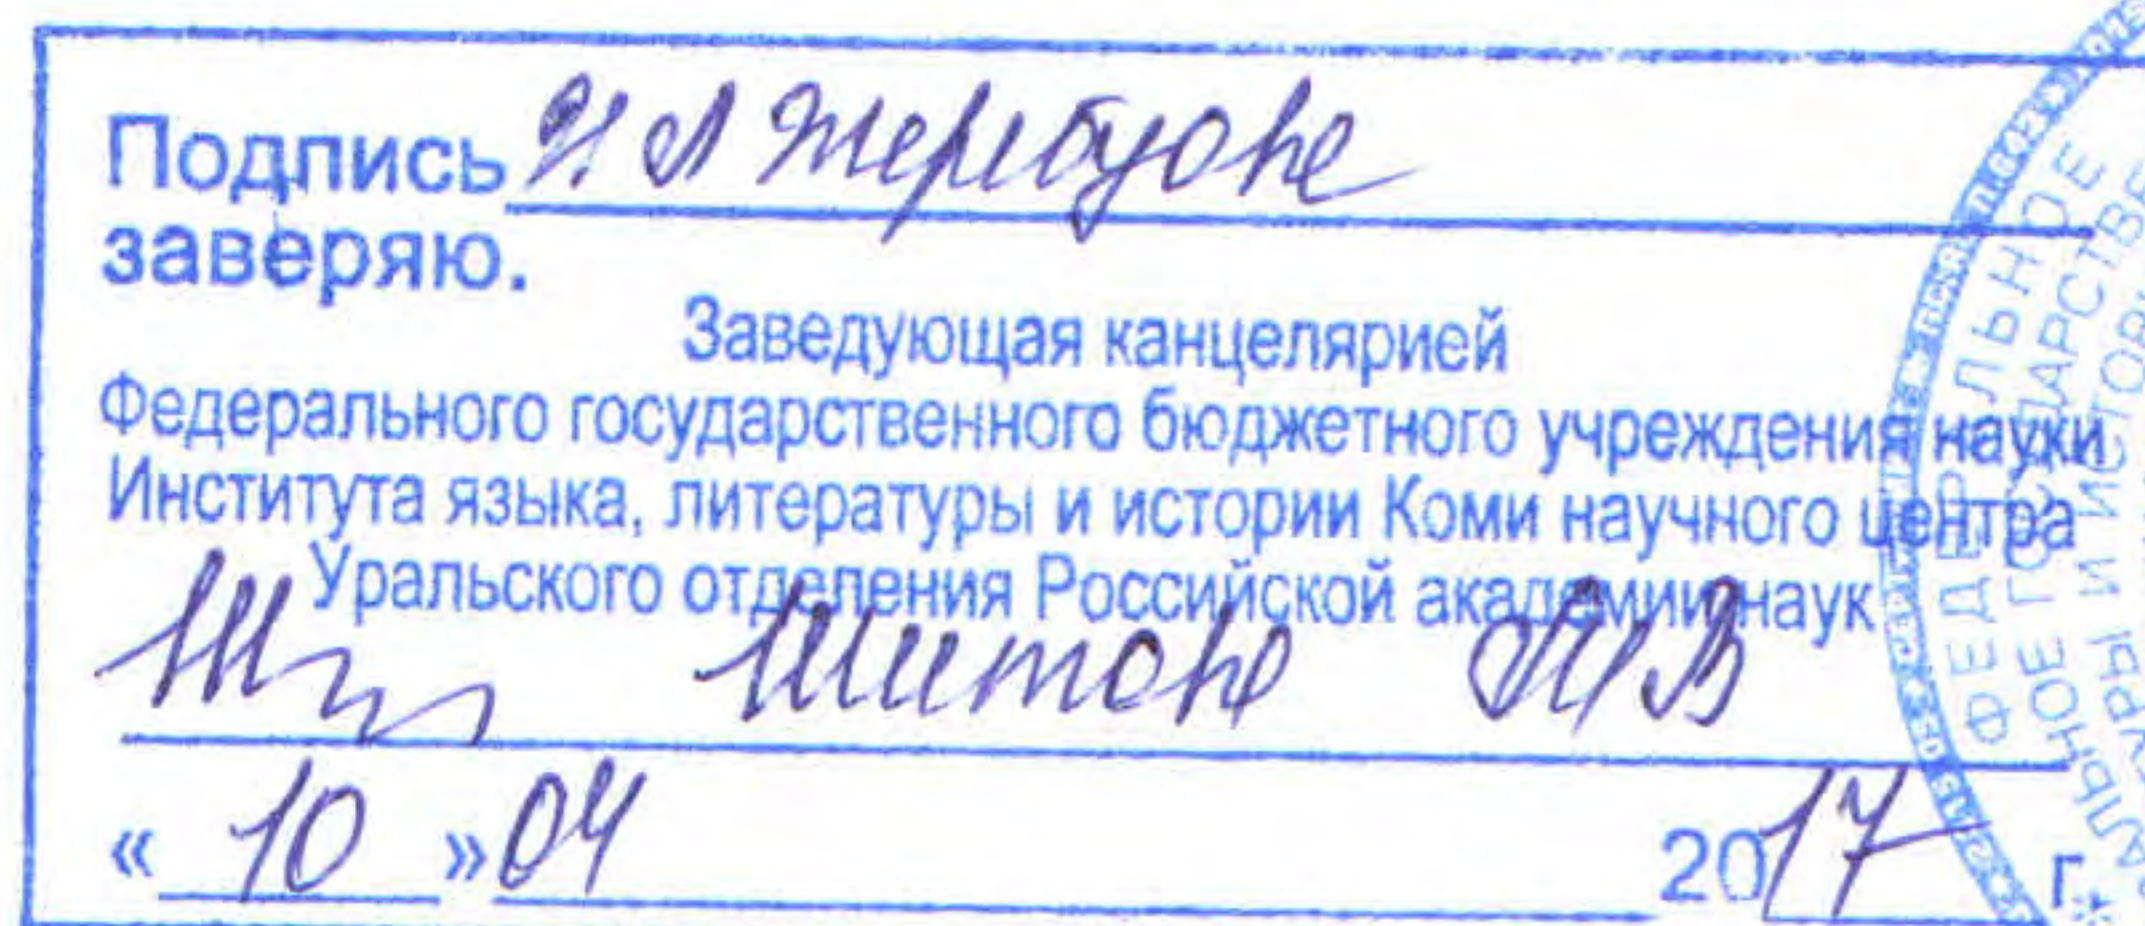 Подпись И Л Жеребцова
заверяю.
Заведующая канцелярией
Федерального государственного бюджетного учреждения науки
Института языка, литературы и истории Коми научного центра
Уральского отделения Российской академии наук
« 10 » 04 2017 г.
ФЕДЕРАЛЬНОЕ